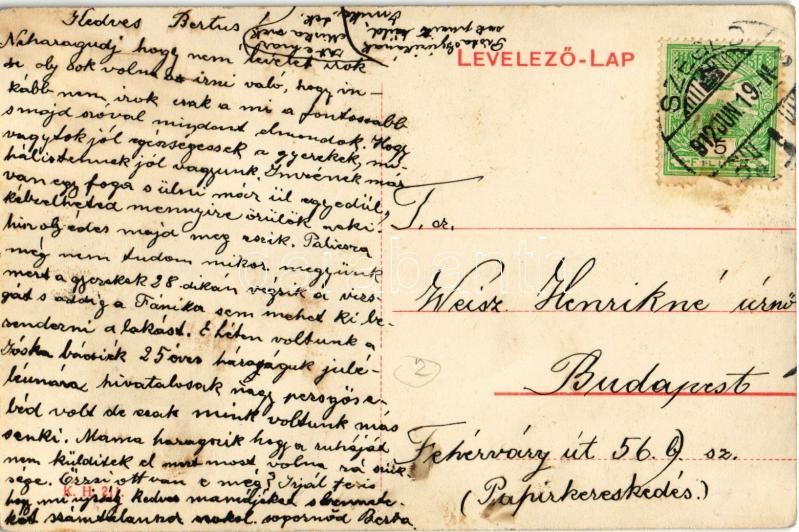 Kedves Bertus
Neharagudj hogy nem levelet irok
de oly sok volna az irni való, hogy in-
kább nem irok csak a mi a fontosabb
s majd szóval mindent elmondok. Hogy
vagytok jól egészségesek a gyerekek, mi
hálistennek jól vagyunk. Imrének már
van egy foga s ülni már ül egyedül,
képzelheted mennyire örülök neki
hiszen oly édes majd meg eszik. Palicsra
még nem tudom mikor megyünk
mert a gyerekek 28 dikán végzik a vizs-
gát s addig a Fánika sem mehet ki be-
rendezni a lakást. E héten voltunk a
Jóska bácsiék 25 éves házaságuk jubi-
leumára hivatalosak nagy pezsgős e-
béd volt de csak mink voltunk más
senki. Mama haragszik hogy a ruháját
nem külditek el mert most volna rá szük
sége. Erzsi ott van e még? Irjál
hogy mi ujság kedves mamádékat s bennete-
ket számtalanszor csókol. sogornőd Berta
LEVELEZŐ-LAP
SZEGED
912 JUN 19
5
FILLÉR
T. cz.
Weisz Henrikné úrnő
Budapest
Fehérváry út 56. sz.
(Papirkereskedés.)
2
K. H. 2
darabanth